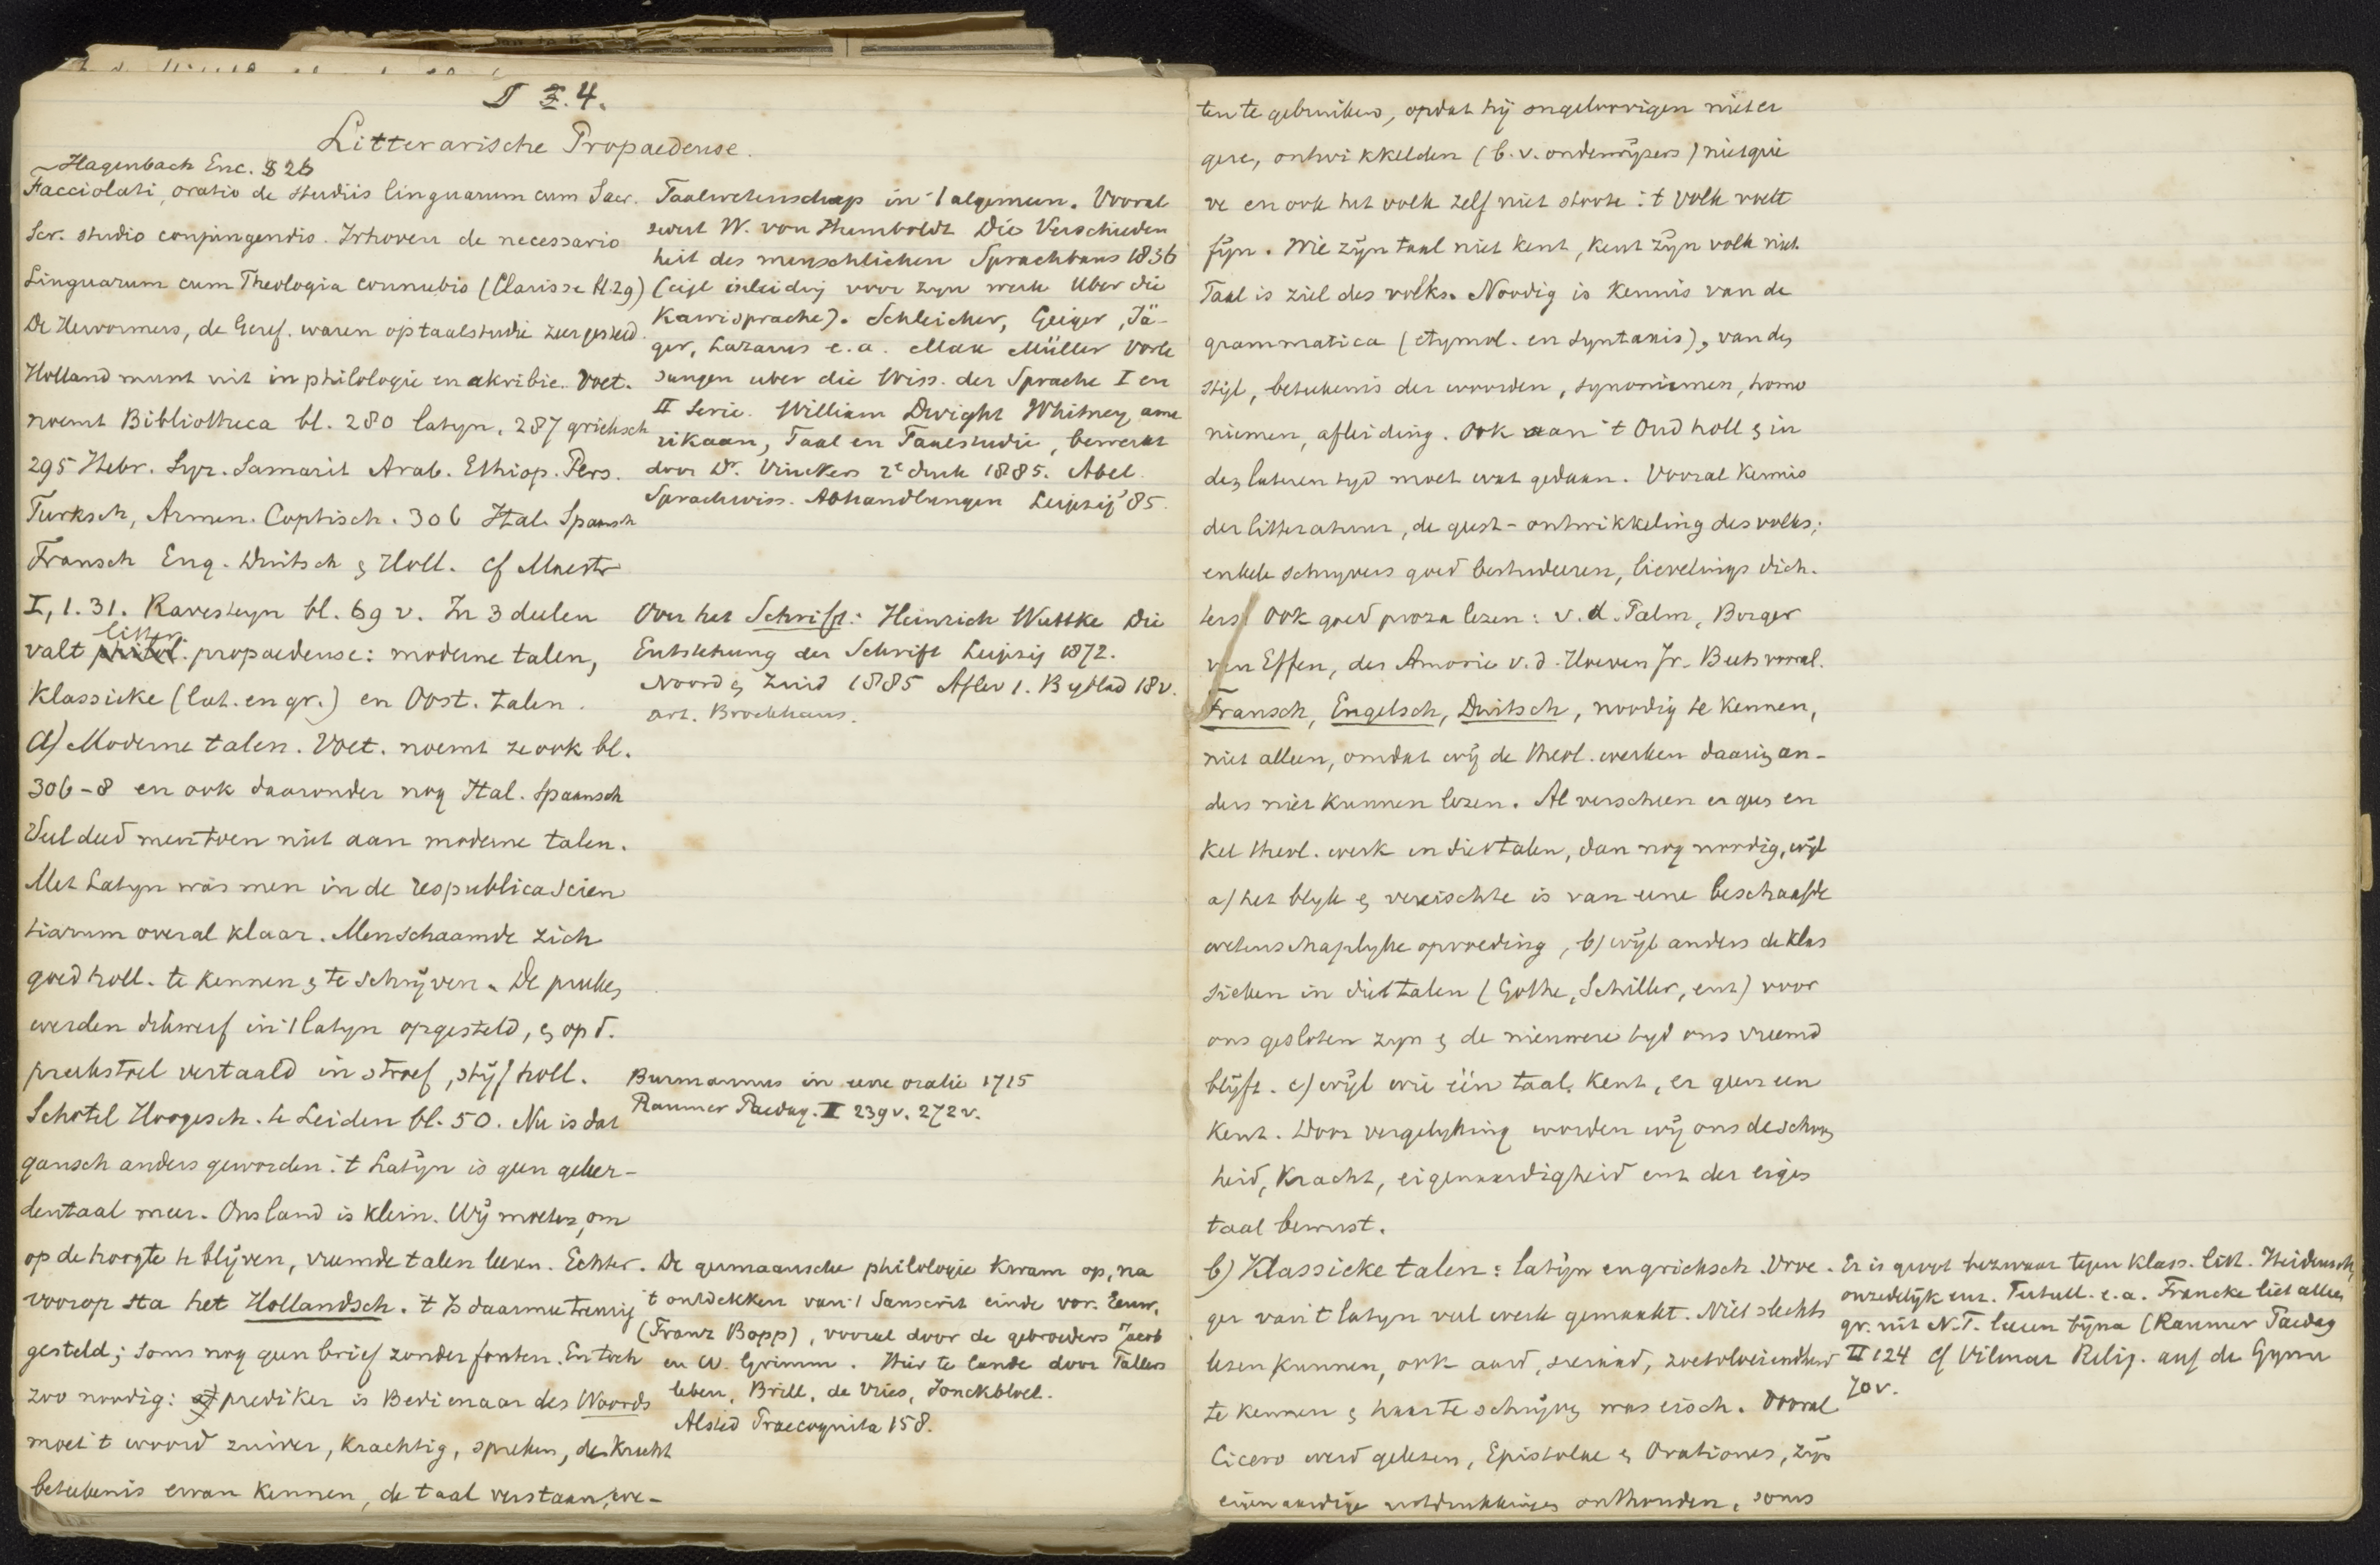 I §.4.
Litterarische Propaedeuse.
Hagenbach Enc. § 26
Facciolati, oratio de studiis linguarum cum Sacr.
Scr. studio conjungendis. Irhoven de necessario
Linguarum cum Theologia connubio (Clarisse bl 29)
De Hervormers, de Geref. waren op taalstudie zeer gesteld.
Holland munt uit in philologie en akribie. Voet.
noemt Bibliotheca bl. 280 latyn, 287 grieksch
295 Hebr. Syr. Samarit Arab. Ethiop. Pers.
Turksch, Armen. Coptisch. 306 Ital. Spaansch
Fransch Eng. Duitsch & Holl. cf Maestr
I, 1.31. Ravesteyn bl. 69 v. In 3 deelen
litter.
valt philol. propaedeuse: moderne talen,
Klassieke (lat. en gr.) en Oost. talen.
a) Moderne talen. Voet. noemt ze ook bl.
306-8 en ook daaronder nog Ital. Spaansch
Veel deed men toen niet aan moderne talen.
Met Latyn was men in de respublica scien
tiarum overal klaar. Men schaamde zich
goed holl. te kennen & te schrijven. De preeken
werden dikwerf in 't latyn opgesteld, & op d.
preekstoel vertaald in stroef, stijf holl.
Schotel Hoogesch. te Leiden bl. 50. Nu is dat
gansch anders geworden: 't Latijn is geen geleer-
dentaal meer. Ons land is klein. Wij moeten, om
op de hoogte te blijven, vreemde talen leeren. Echter.
voorop sta het Hollandsch. 't Is daarmee treurig
gesteld; soms nog geen brief zonder fouten. En toch
zoo noodig: prediker is Bedienaar des Woords
moet 't woord zuiver, krachtig, spreken, de kracht
beteekenis ervan kennen, de taal verstaan, we-
Taalwetenschap in 't algemeen. Vooral
eerst W. von Humboldt Die Verschieden
heit des menschlichen Sprachbaus 1836
(eigl inleiding voor zyn werk Uber die
Kawisprache). Schleicher, Geiger, Jä-
ger, Lazarus e.a. Max Müller Vorle
sungen uber die Wiss. der Sprache I en
II Serie. William Dwight Whitney ame
rikaan, Taal en Taalstudie, bewerkt
door Dr. Vinckers 2e druk 1885. Abel
Sprachwiss. Abhandlungen Leipzig '85.
Over het Schrift: Heinrich Wuttke Die
Entstehung der Schrift Leipzig 1872.
Noord & Zuid 1885 Aflev 1. Byblad 18 v.
art. Brockhaus.
Burmannus in eene oratie 1715
Raumer Paedag. II 239 v. 272 v.
De germaansche philologie kwam op, na
't ontdekken van 't Sanscrit einde vor. Eeuw,
(Franz Bopp), vooral door de gebroeders Jacob
en W. Grimm. Hier te lande door Fallers
leben, Brill, de Vries, Jonckbloet.
Alsted Praecognita 158.
ten te gebruiken, opdat hij ongeloovigen niet er
gere, ontwikkelden (b.v. onderwijzers) niet grie
ve en ook het volk zelf niet stoote: 't volk voelt
fijn. Wie zijn taal niet kent, kent zijn volk niet.
Taal is ziel des volks. Noodig is kennis van de
grammatica (etymol. en syntaxis), van den
stijl, beteekenis der woorden, synoniemen, homo
niemen, afleiding. Ook aan 't Oud holl & in
den lateren tyd moet wat gedaan. Vooral kennis
der litteratuur, de geest-ontwikkeling des volks;
enkele schrijvers goed bestudeeren, lievelings dich-
ters. Ook goed proza lezen: v. d. Palm, Borger
van Effen, des Amorie v. d. Hoeven Jr. Beets vooral.
Fransch, Engelsch, Duitsch, noodig te kennen,
niet alleen, omdat wij de theol. werken daarin an-
ders niet kunnen lezen. Al verscheen er geen en
kel theol. werk in die talen, dan nog noodig, wijl
a) het blyk & vereischte is van eene beschaafde
wetenschaplyke opvoeding, b) wijl anders de klas
sieken in die talen (Göthe, Schiller, enz) voor
ons gesloten zyn & de nieuwere tyd ons vreemd
blijft. c) wijl wie één taal kent, er geen een
kent. Door vergelyking worden wij ons de schoon
heid, kracht, eigenaardigheid enz der eigen
taal bewust.
b) Klassieke talen: latijn en grieksch. Vroe-
ger van 't latyn veel werk gemaakt. Niet slechts
lezen kunnen, ook aard, sieraad, zoetvloeiendheid
te kennen & haar te schrijven was eisch. Vooral
Cicero werd gelezen, Epistolae & Orationes, zijn
eigenaardige uitdrukkingen onthouden, soms
Er is groot bezwaar tegen klass. litt. Heidensch,
onzedelijk enz. Tertull. e.a. Francke liet alleen
gr. uit N.T. leeren bijna (Raumer Paedag
II 124 cf Vilmar Relig. auf de Gymn
70 v.